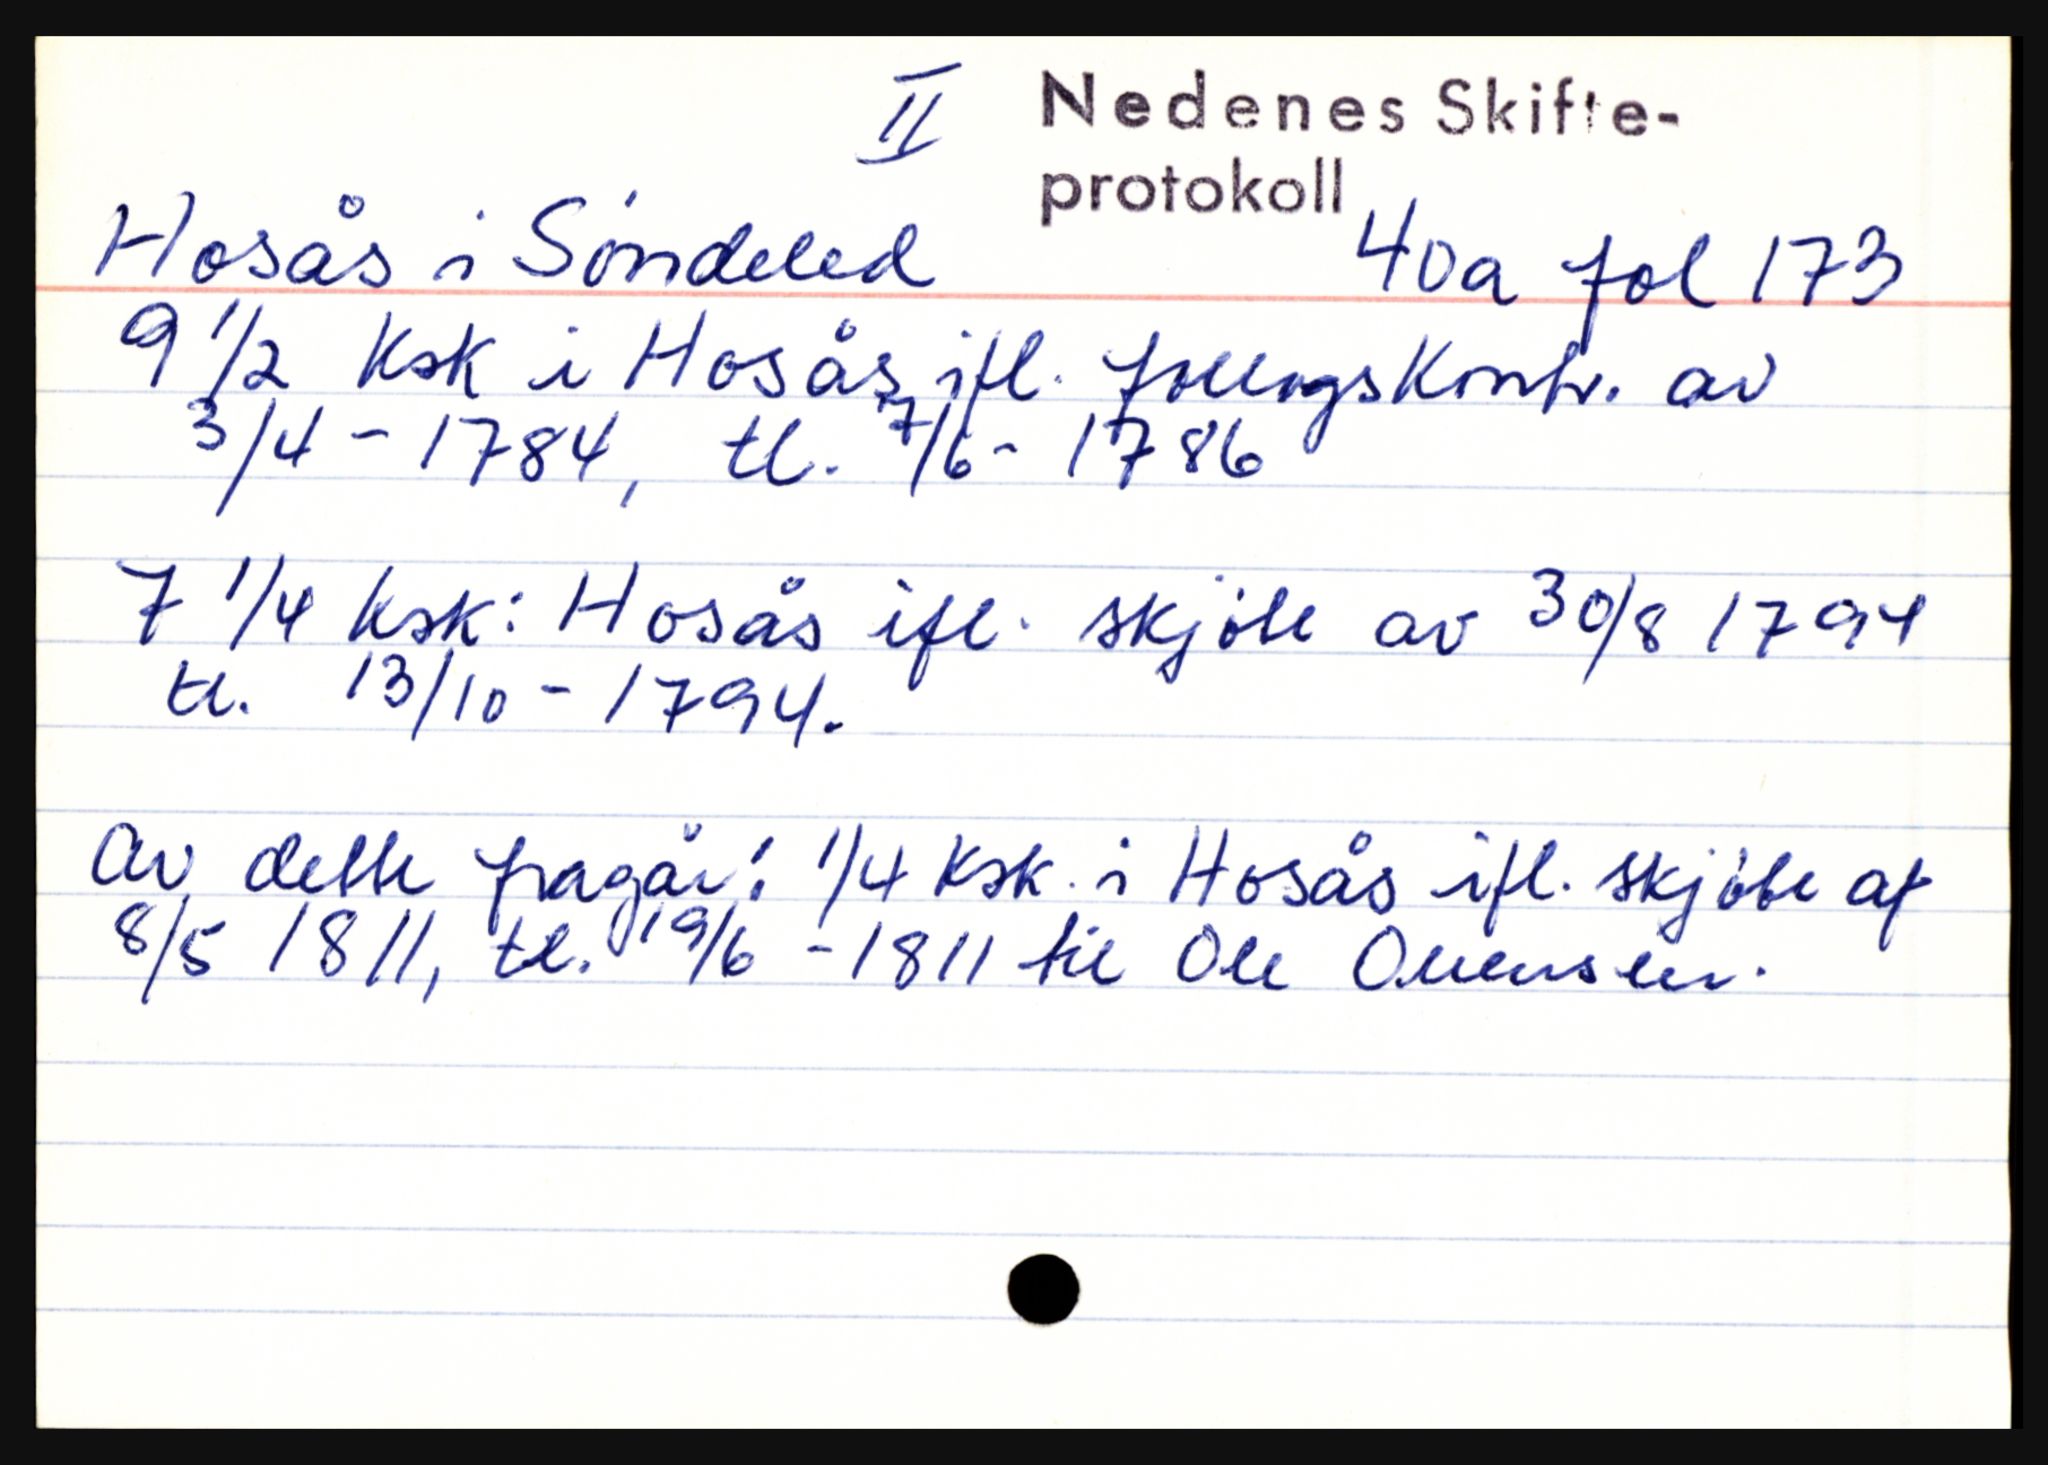 II Nedenes Skifte-
protokoll
Hosås i Söndeled 40a fol 173
9 1/2 ksk i Hosås ifl. av
3/4 - 1784, tl. 7/6 - 1786
7 1/4 ksk: Hosås ifl. skjöte av 30/8 1794
tl. 13/10 - 1794.
Av dette fragår: 1/4 ksk. i Hosås ifl. skjöte af
8/5 1811, tl. 19/6 - 1811 til Ole